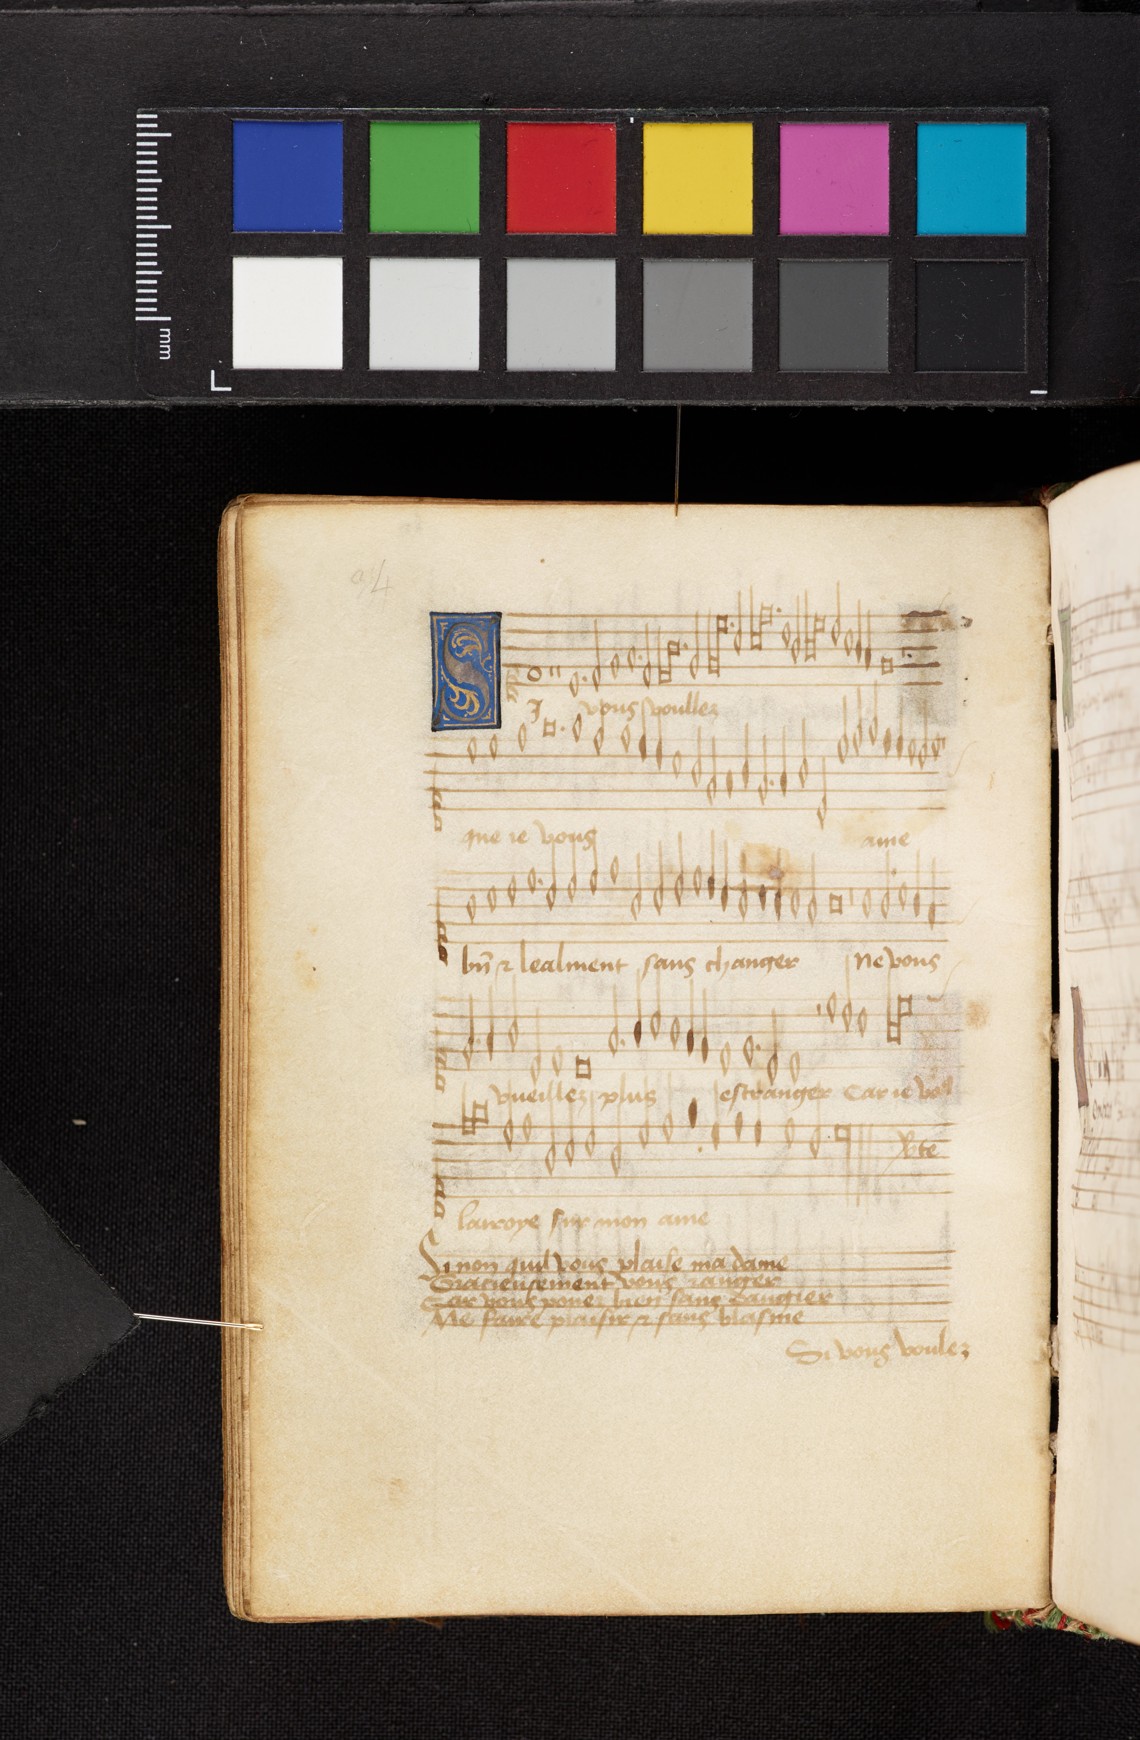 mm
34
SI vous voullez
que ie vous ame
bn̄ & lealment sans changer ne vous
vueillez plus estranger Car ie vo9
lauroye sur mon ame
Sinon quil vous plaise ma dame
Gracieusement vous ranger
Car vous pouez bien sans dangier
Me faire plaisir & sans blasme
Si vous voulez